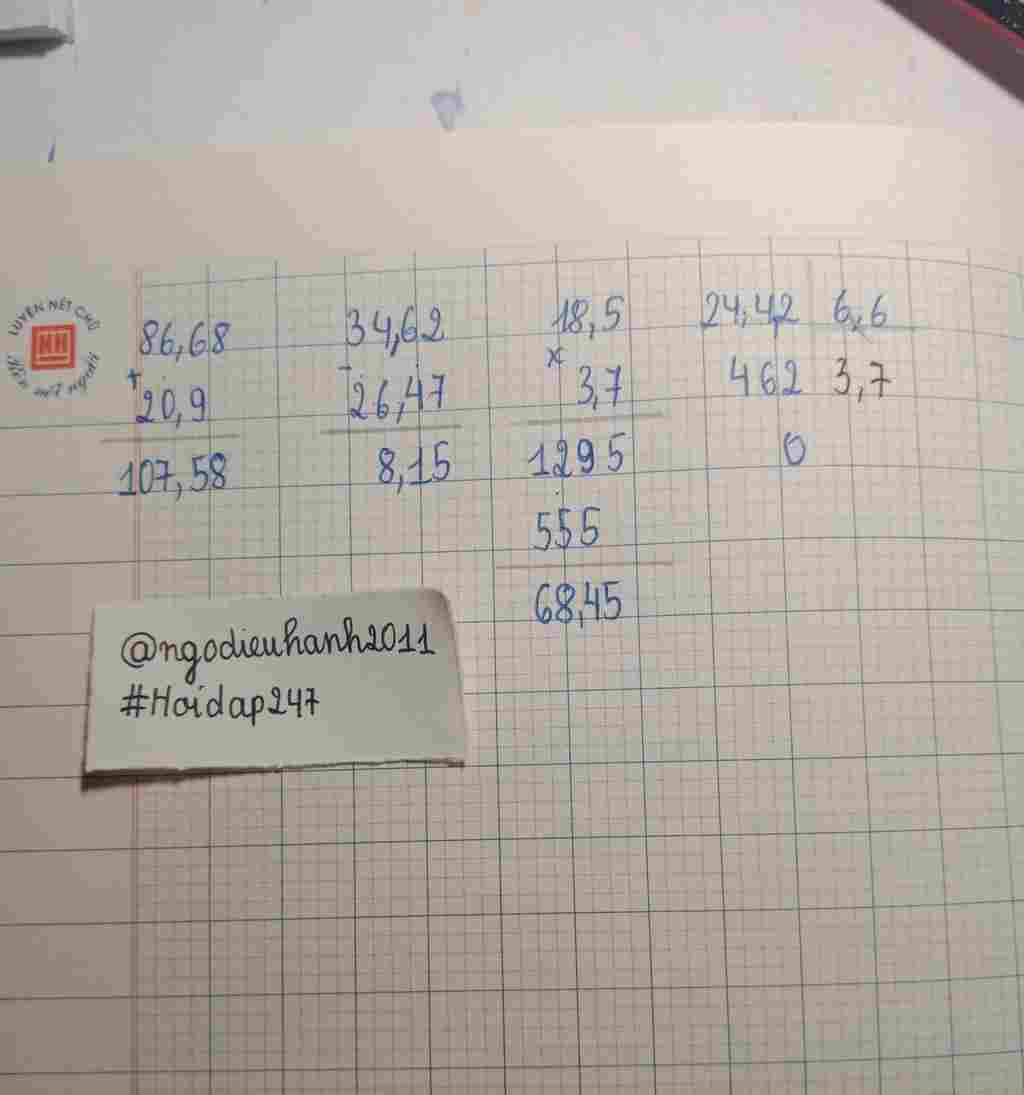 LUYỆN NẾT CHỮ
NH
Rèn nết người
86,68
+
20,9
107,58
34,62
-
26,47
8,15
18,5
×
3,7
1295
555
68,45
24,42 6,6
462 3,7
0
@ngodieuhanh2011
#Hoidap247